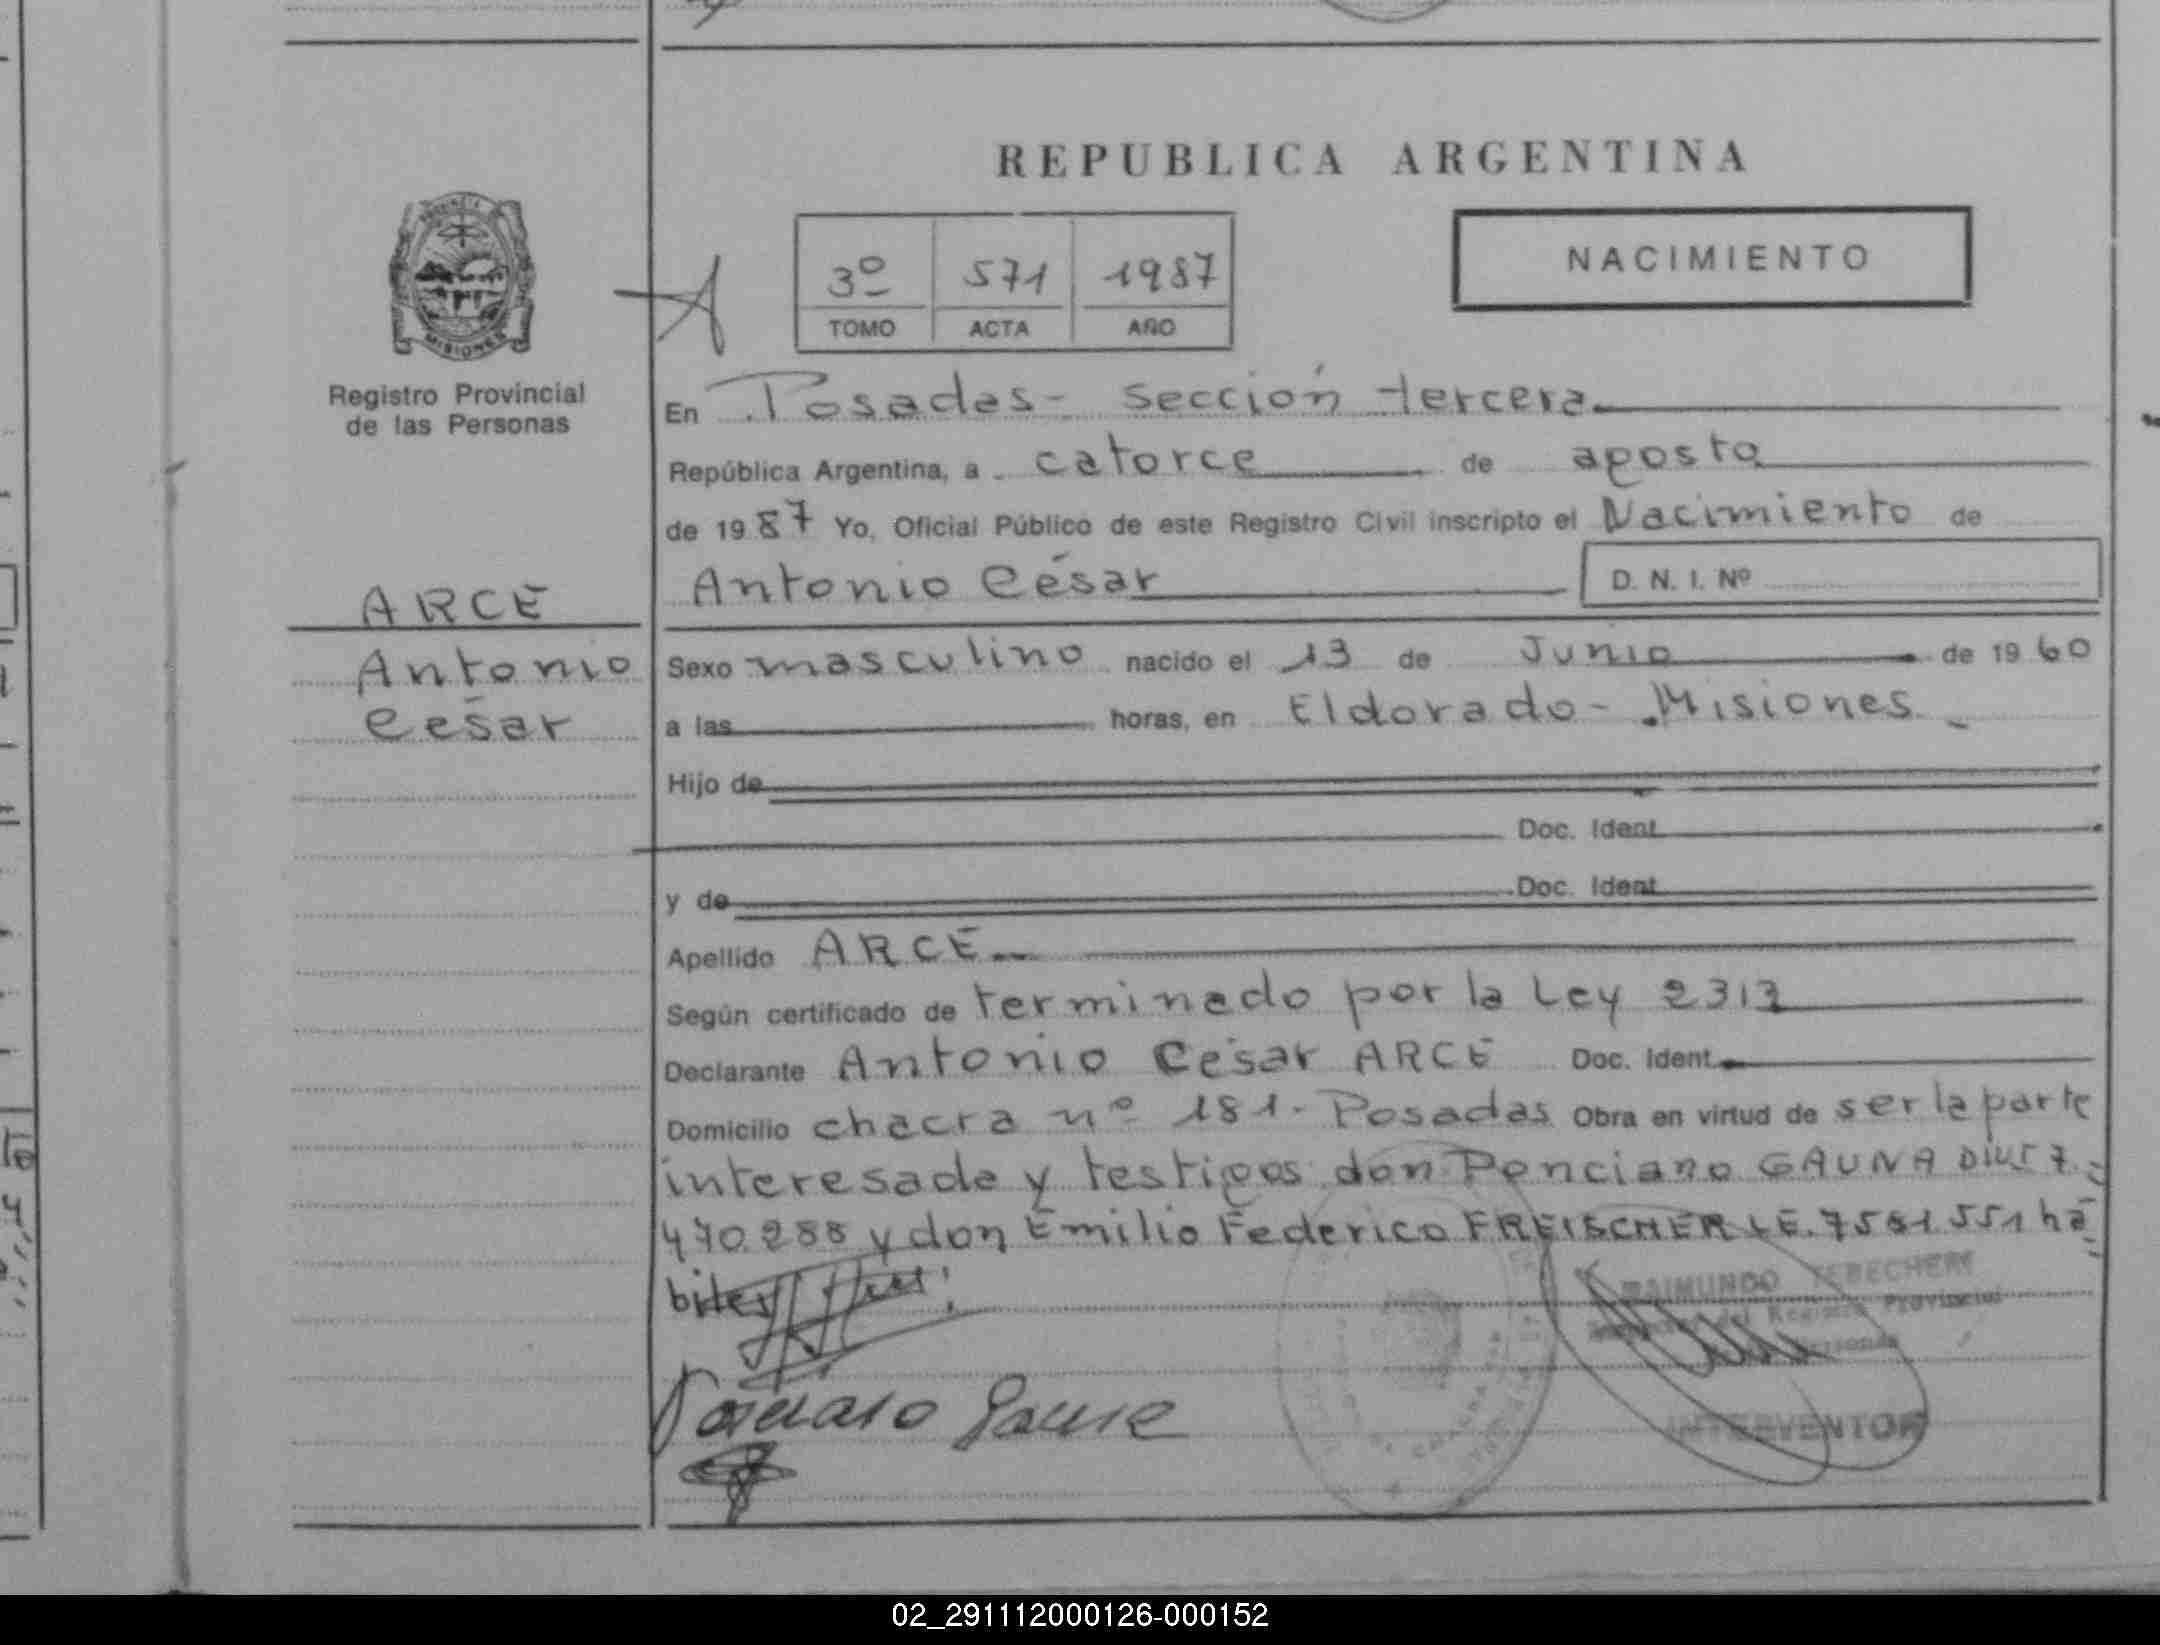 REPUBLICA ARGENTINA
NACIMIENTO
3º 571 1987
TOMO ACTA AÑO
PROVINCIA
MISIONES
Registro Provincial
de las Personas
ARCE
Antonio
César
En Posadas - sección tercera
República Argentina, a catorce de agosto
de 1987 Yo, Oficial Público de este Registro Civil inscripto el Nacimiento de
Antonio César D. N. I. Nº
Sexo masculino nacido el 13 de Junio de 1960
a las horas, en Eldorado - Misiones
Hijo de
Doc. Ident.
y de Doc. Ident.
Apellido ARCE
Según certificado de terminado por la Ley 2313
Declarante Antonio César ARCE Doc. Ident.
Domicilio chacra nº 181 - Posadas Obra en virtud de ser la parte
interesada y testigos don Ponciano GAUNA DNI 7.
470.288 y don Emilio Federico FREISCHER L.E. 7561551 há
biles
RAIMUNDO TEBECHERI
del Registro Provincial
Personas
Gauna
INTERVENTOR
02_291112000126-000152